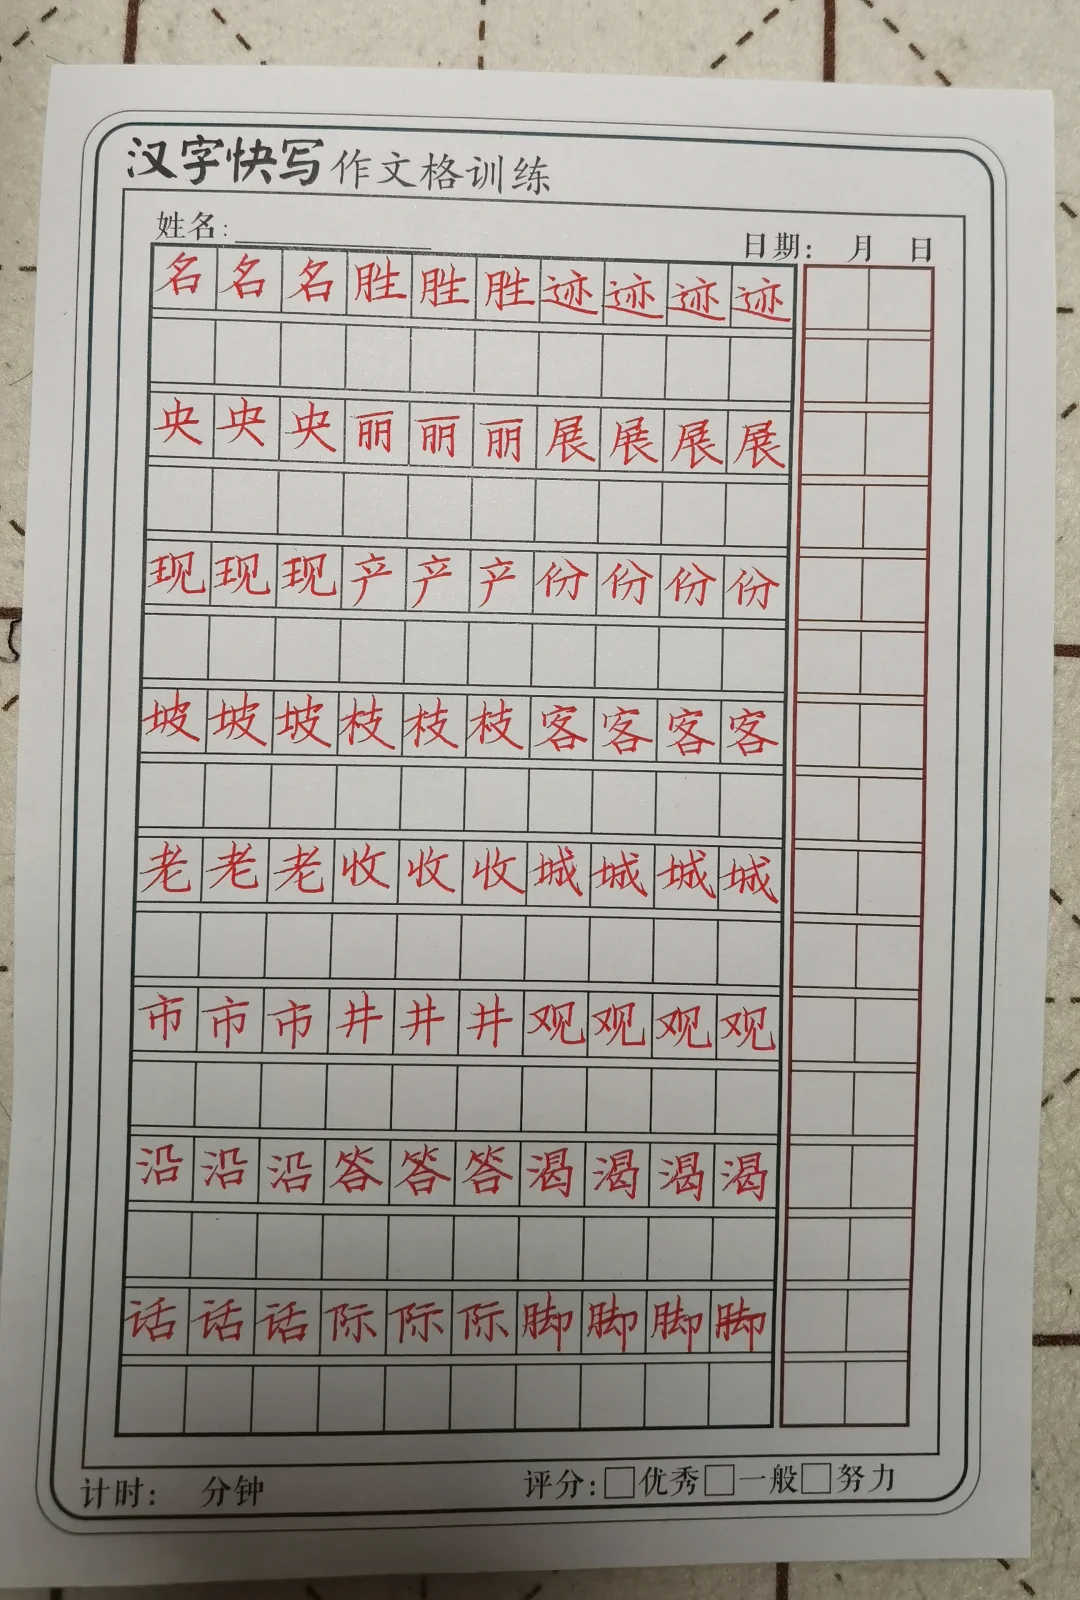 汉字快写作文格训练
姓名: 日期: 月 日
名名名胜胜胜迹迹迹迹
央央央丽丽丽展展展展
现现现产产产份份份份
坡坡坡枝枝枝客客客客
老老老收收收城城城城
市市市井井井观观观观
沿沿沿答答答渴渴渴渴
话话话际际际脚脚脚脚
计时: 分钟 评分:□优秀□一般□努力